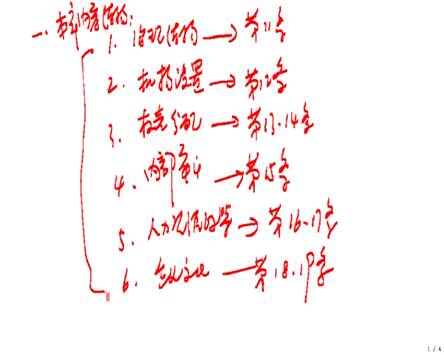 一、本章内容结构:
1. 治理结构→第11条
2. 机构设置→第12条
3. 权责分配→第13.14条
4. 内部审计→第15条
5. 人力资源政策→第16.17条
6. 企业文化→第18.19条
1 / 4